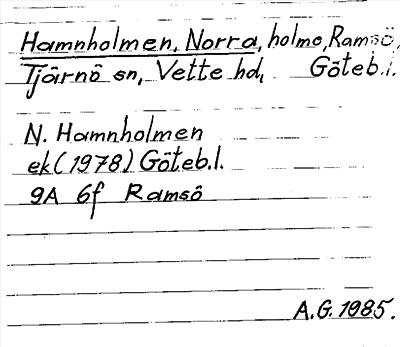 Hamnholmen, Norra, holme, Ramsö,
Tjärnö sn, Vette hd, Göteb.l.
N. Hamnholmen
ek (1978) Göteb.l.
9A 6f Ramsö
A.G. 1985.